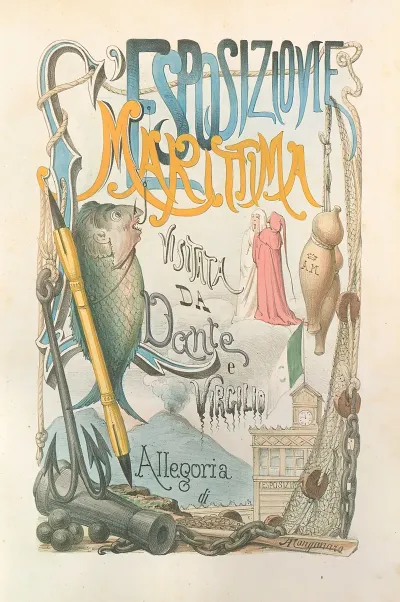 L'ESPOSIZIONE
MARITTIMA
VISITATA
DA
Dante
e
VIRGILIO
A.M.
Allegoria
di
A Manganaro